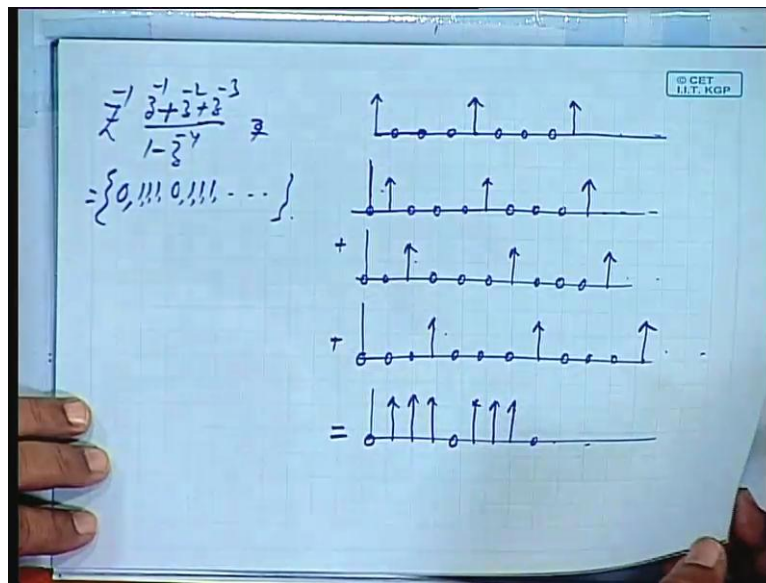 © CET
I.I.T. KGP
Z⁻¹ (z⁻¹ + z⁻² + z⁻³) / (1 − z⁻⁴)
= {0, 1, 1, 1, 0, 1, 1, 1, - - - }.
+
+
=